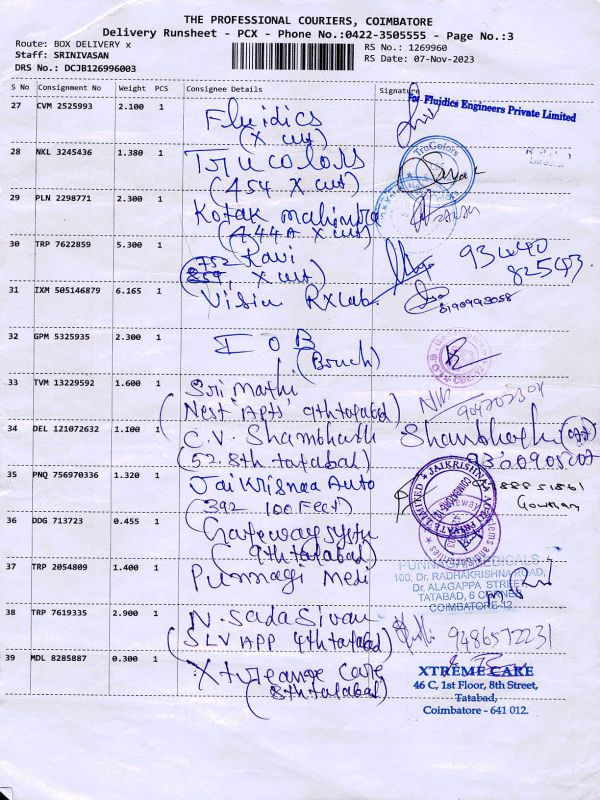 THE PROFESSIONAL COURIERS, COIMBATORE
Delivery Runsheet - PCX - Phone No.:0422-3505555 - Page No.:3
Route: BOX DELIVERY x
RS No.: 1269960
Staff: SRINIVASAN
RS Date: 07-Nov-2023
DRS No.: DCJB126996003
S No Consignment No Weight PCS Consignee Details Signature
27 CVM 2525993 2.100 1 Fluidics
For Fluidics Engineers Private Limited
(X cut)
28 NKL 3245436 1.380 1 Trucolors
TruColors
(454 X cut)
29 PLN 2298771 2.300 1 Kotak Mahindra
(444A X cut)
30 TRP 7622859 5.300 1 752 Ravi
93440
82543
859, X cut)
31 IXM 505146879 6.165 1 Vision RXLab.
8190993058
32 GPM 5325935 2.300 1 I O B
(Branch)
33 TVM 13229592 1.600 1 Sri Mathi
(Nest 'Apts' 9th tatabad)
34 DEL 121072632 1.100 1 C.V. Shambhath
(52. 8th tatabad)
35 PNQ 756970336 1.320 1 Jai Krishnaa Auto
(392 100 Feet)
Gowtham
36 DDG 713723 0.455 1 Gateway System
(9th tatabad)
37 TRP 2054809 1.400 1 Punnagi Medi
PUNNAGAI MEDICALS
100, Dr. RADHAKRISHNA ROAD,
Dr. ALAGAPPA STREET
TATABAD, 6 CORNER
COIMBATORE-12
38 TRP 7619335 2.900 1 N. Sadasivan
(SLV APP 4th tatabad)
9486572231
39 MDL 8285887 0.300 1 Xtureame Care
(8th tatabad)
XTREME CARE
46 C, 1st Floor, 8th Street,
Tatabad,
Coimbatore - 641 012.